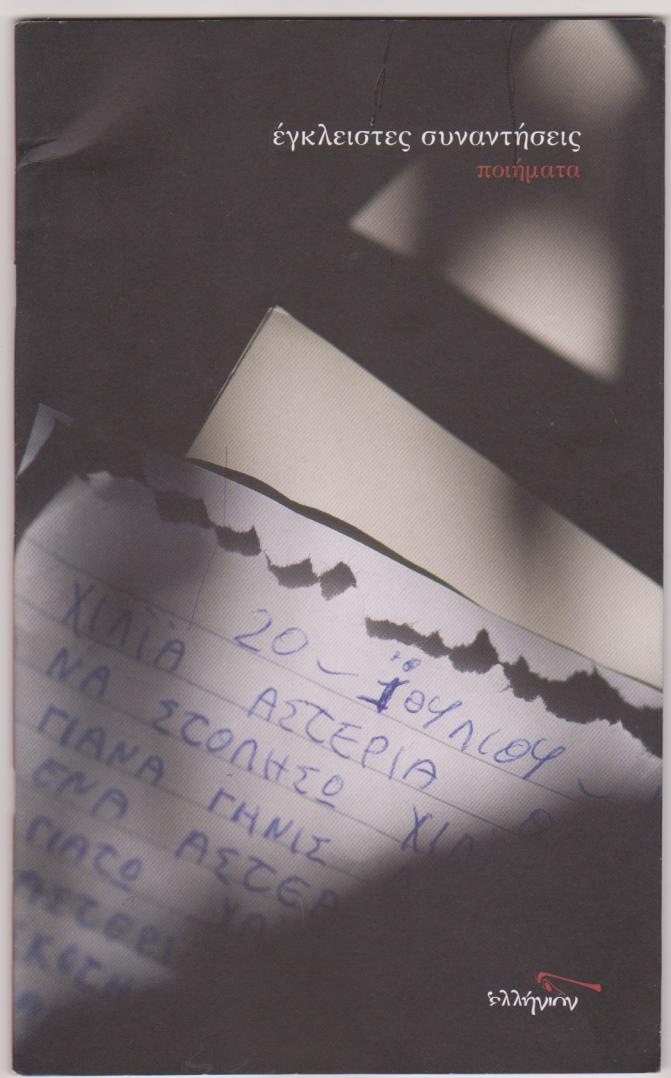 έγκλειστες συναντήσεις
ποιήματα
20 - Ιουλιου -
ΧΙΛΙΑ ΑΣΤΕΡΙΑ Θ
ΝΑ ΣΤΟΛΗΣΩ ΧΙΛ
ΓΙΑΝΑ ΓΗΝΙΣ
ΕΝΑ ΑΣΤΕΡ
ΓΙΑΤΩ
ΑΣΤΕΡΙ
ΣΚΟΤΗ
ελλήνιον